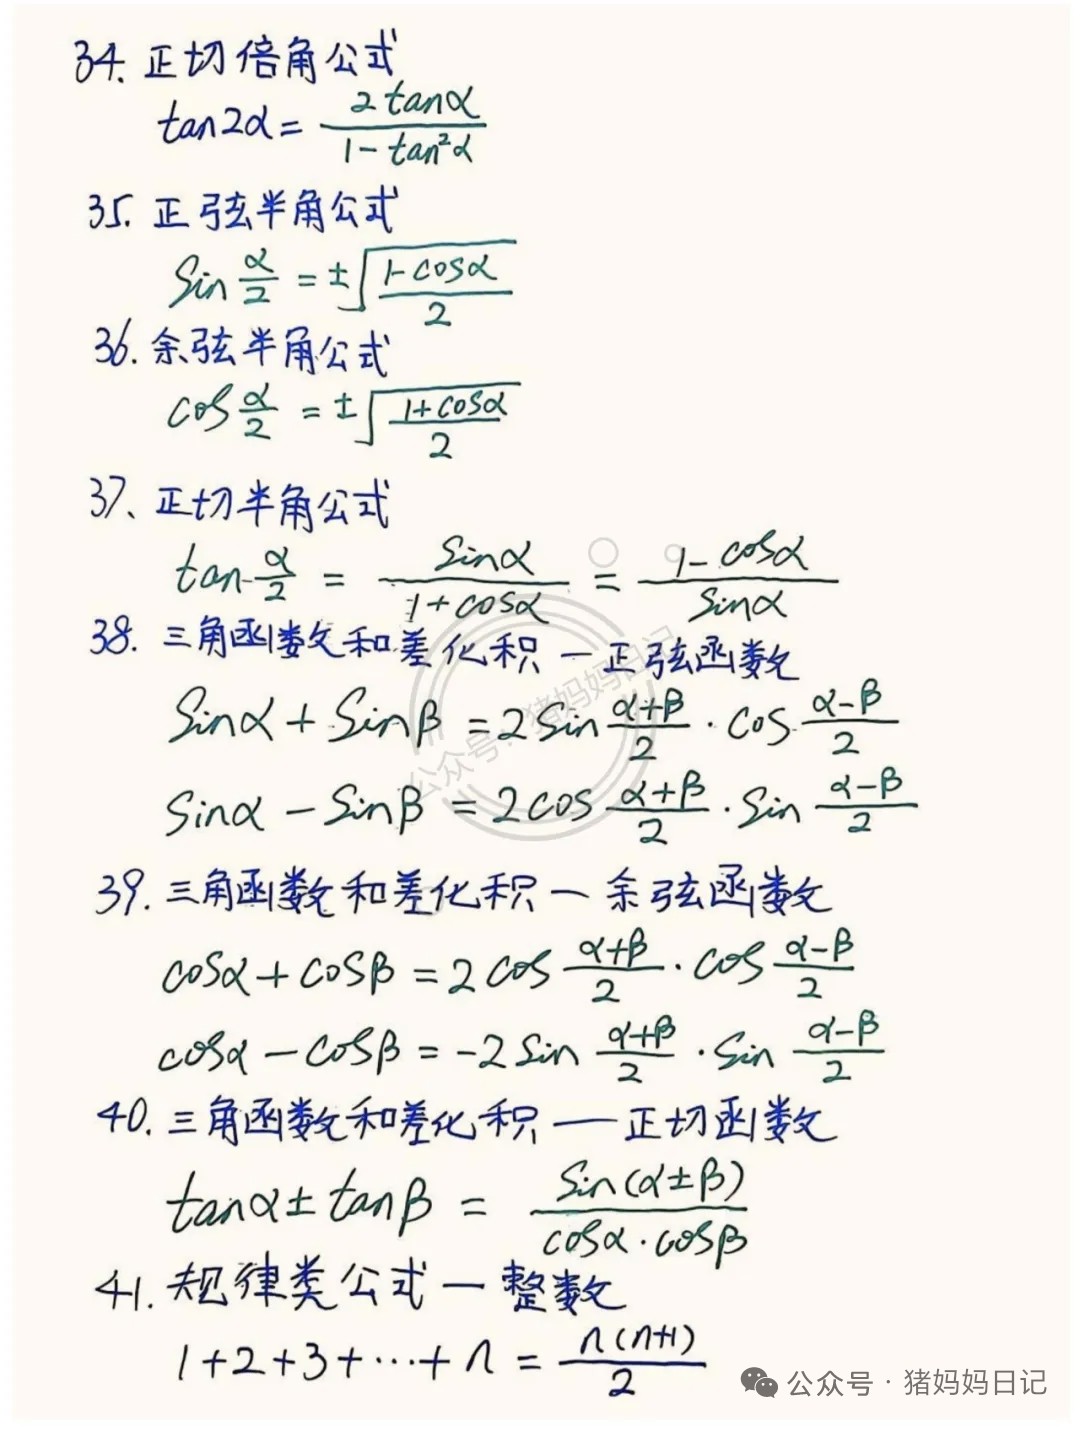 34. 正切倍角公式
tan2α = 2tanα / (1 - tan²α)
35. 正弦半角公式
Sin α/2 = ±√((1-cosα)/2)
36. 余弦半角公式
cos α/2 = ±√((1+cosα)/2)
37、正切半角公式
tan α/2 = Sinα / (1+cosα) = (1-cosα) / Sinα
38. 三角函数和差化积一正弦函数
Sinα + Sinβ = 2Sin (α+β)/2 · cos (α-β)/2
Sinα - Sinβ = 2cos (α+β)/2 · Sin (α-β)/2
39. 三角函数和差化积一余弦函数
cosα + cosβ = 2cos (α+β)/2 · cos (α-β)/2
cosα - cosβ = -2Sin (α+β)/2 · Sin (α-β)/2
40. 三角函数和差化积一正切函数
tanα ± tanβ = Sin(α±β) / (cosα · cosβ)
41. 规律类公式一整数
1+2+3+⋯+n = n(n+1) / 2
公众号 · 猪妈妈日记
公众号 · 猪妈妈日记